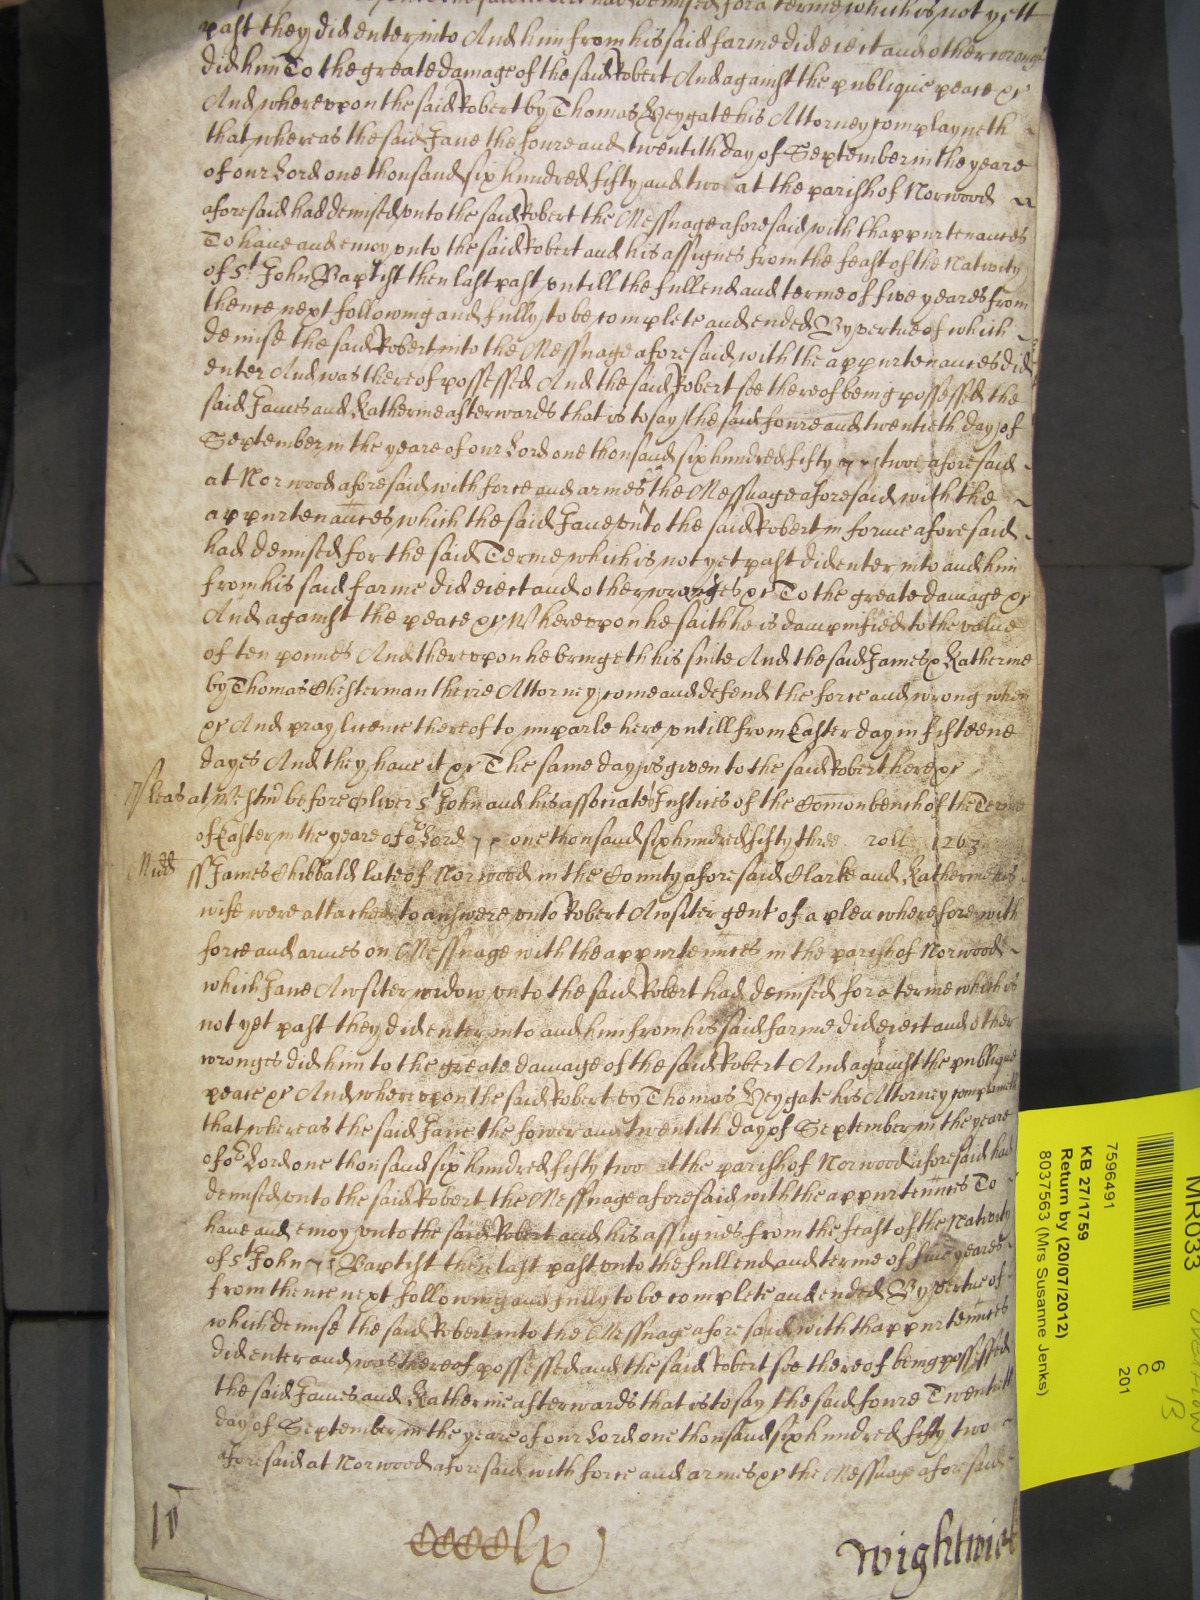 had demised for a terme which is not yett
past they did enter into And him from his said farme did eiect and other wrongs
did him To the greate damage of the said Robert And against the publique peace &c
And wherevpon the said Robert by Thomas Heygate his Attorney complayneth
that whereas the said Jane the foure and twentith day of September in the yeare
of our Lord one thousand six hundred fifty and two at the parish of Norwood
aforesaid had demised vnto the said Robert the Messuage aforesaid with thappurtenances
To haue and enioy vnto the said Robert and his assignes from the feast of the Nativity
of St John Baptist then last past vntill the full end and terme of five yeares from
thence next following and fully to be complete and ended By vertue of which
demise the said Robert into the Messuage aforesaid with the appurtenances did
enter And was thereof possessed And the said Robert soe thereof being possessed the
said James and Katherine afterwards that is to say the said foure and twentieth day of
September in the yeare of our Lord one thousand six hundred fifty two aforesaid
at Norwood aforesaid with force and armes the Messuage aforesaid with the
appurtenances which the said Jane vnto the said Robert in forme aforesaid
had demised for the said Terme which is not yet past did enter into and him
from his said farme did eiect and other wronges &c To the greate damage &c
And against the peace &c Wherevpon he saith he is dampnified to the value
of ten pounes And therevpon he bringeth his suite And the said James & Katherine
by Thomas Chesterman theire Attorney come and defend the force and wrong when
&c And pray licence thereof to imparle here vntill from Easter day in fifteene
dayes And they haue it &c The same day is given to the said Robert here &c
Pleas at Westmr before Oliver St John and his associate Justices of the Comon bench of the Terme
of Easter in the yeare of or Lord one thousand six hundred fifty three roll 1263
Midd ss James Chibbald late of Norwood in the County aforesaid Clarke and Katherine his
wife were attached to answere vnto Robert Awsiter gent of a plea wherefore with
force and armes on Messuage with the appurtennces in the parish of Norwood
which Jane Awsiter widow vnto the said Robert had demised for a terme which is
not yet past they did enter into and him from his said farme did eiect and other
wronges did him to the greate damage of the said Robert And against the publique
peace &c And wherevpon the said Robert by Thomas Heygate his Attorney complaineth
that whereas the said Jane the fower and twentith day of September in the yeare
of or Lord one thousand six hundred fifty two at the parish of Norwood aforesaid had
demised vnto the said Robert the Messuage aforesaid with the appurtennces To
haue and enioy vnto the said Robert and his assignes from the feast of the Nativity
of St John Baptist then last past vnto the full end and terme of five yeares
from thence next following and fully to be complete and ended By vertue of
which demise the said Robert into the Messuage aforesaid with thappurtennces
did enter and was thereof possessed and the said Robert soe thereof being possessed
the said James and Katherine afterwards that is to say the said foure Twentith
day of September in the yeare of our Lord one thousand six hundred fifty two
aforesaid at Norwood aforesaid with force and armes &c the Messuage aforesaid
CCCClxj
Wightwick
MR033
6
C
201
7596491
KB 27/1759
Return by (20/07/2012)
8037563 (Mrs Susanne Jenks)